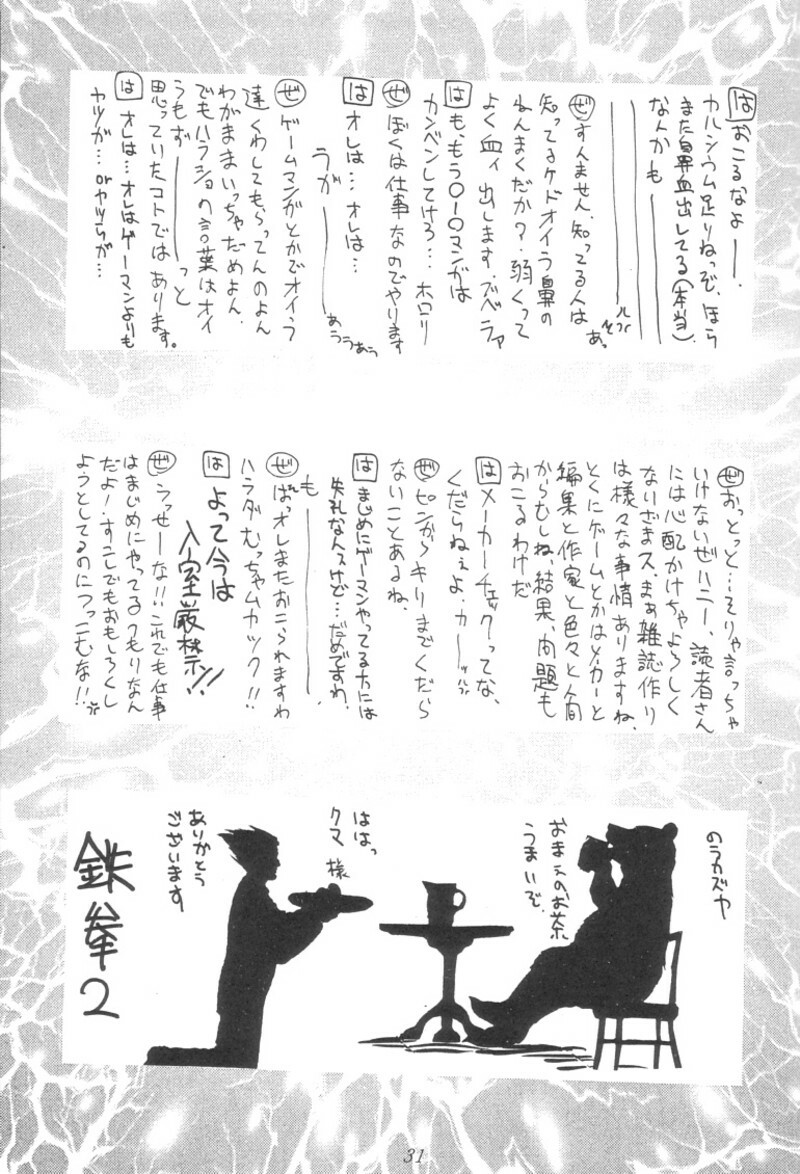 は おこるなよ——.
カルシウム足りねっぞ、ほら
また鼻血出してる(本当)
なんかも————
ぜ すんません、知ってる人は
知ってるケドオイラ鼻の
ねんまくだか?弱くって
よく血ィ出します.ズベラァ
は も、もう〇ー〇マンガは
カンベンしてけろ… ホロリ
ぜ ぼくは仕事なのでやります
は オレは…オレは…
うが————
あううあう
ぜ ゲームマンガとかでオイラ
達くわしてもらってんのよん
わがままいっちゃだめよん.
でもハラショの言葉はオイ
うもず————っと
思っていたコトではあります。
は オレは…オレはゲーマンよりも
ヤツが… orヤツらが…
ぜ おっとっと…そりゃ言っちゃ
いけないぜハニー、読者さん
には心配かけちゃよろしく
ないざまス、まぁ雑誌作り
は様々な事情ありますね、
とくにゲームとかはメーカーと
編集と作家と色々と人間
からむしね、結果、問題も
おこるわけだ
は メーカーチェックってな、
くだらねぇよ、カーッ
ぜ ピンからキリまでくだら
ないことあるね、
は まじめにゲーマンやってる方には
失礼なんスけど…だめですわ、
も————.
ぜ ばっオレまたおこられますわ
ハラダむっちゃムカック!!
は よって今は
入室厳禁!!
ぜ うっせーな!!これでも仕事
はまじめにやってるつもりなん
だよ!すこしでもおもしろくし
ようとしてるのにつっこむな!!
のうカズヤ
おまえのお茶
うまいぞ、
ははっ
クマ様
ありがとう
ございます
鉄拳2
31